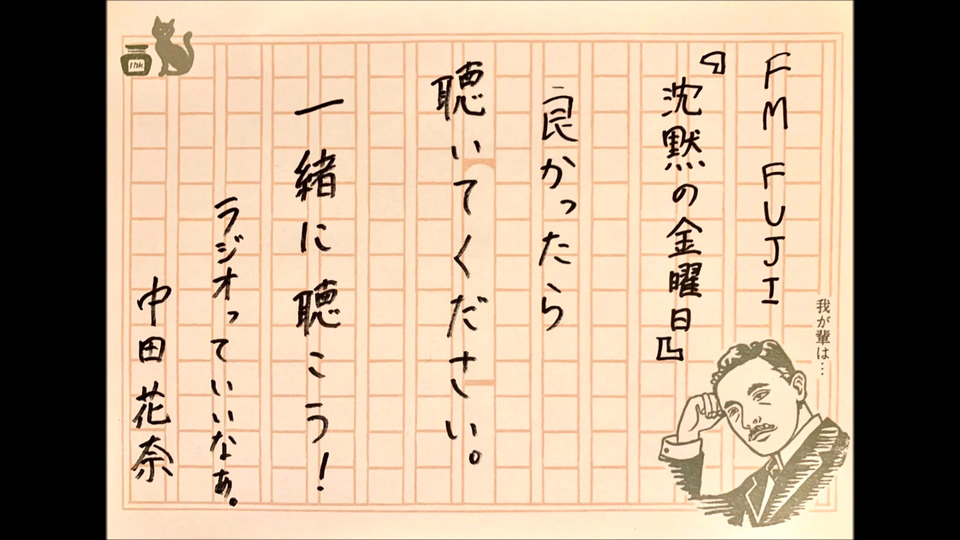 FM FUJI
『沈黙の金曜日』
良かったら
聴いてください。
一緒に聴こう！
ラジオっていいなぁ。
中田花奈
我が輩は…
Ink